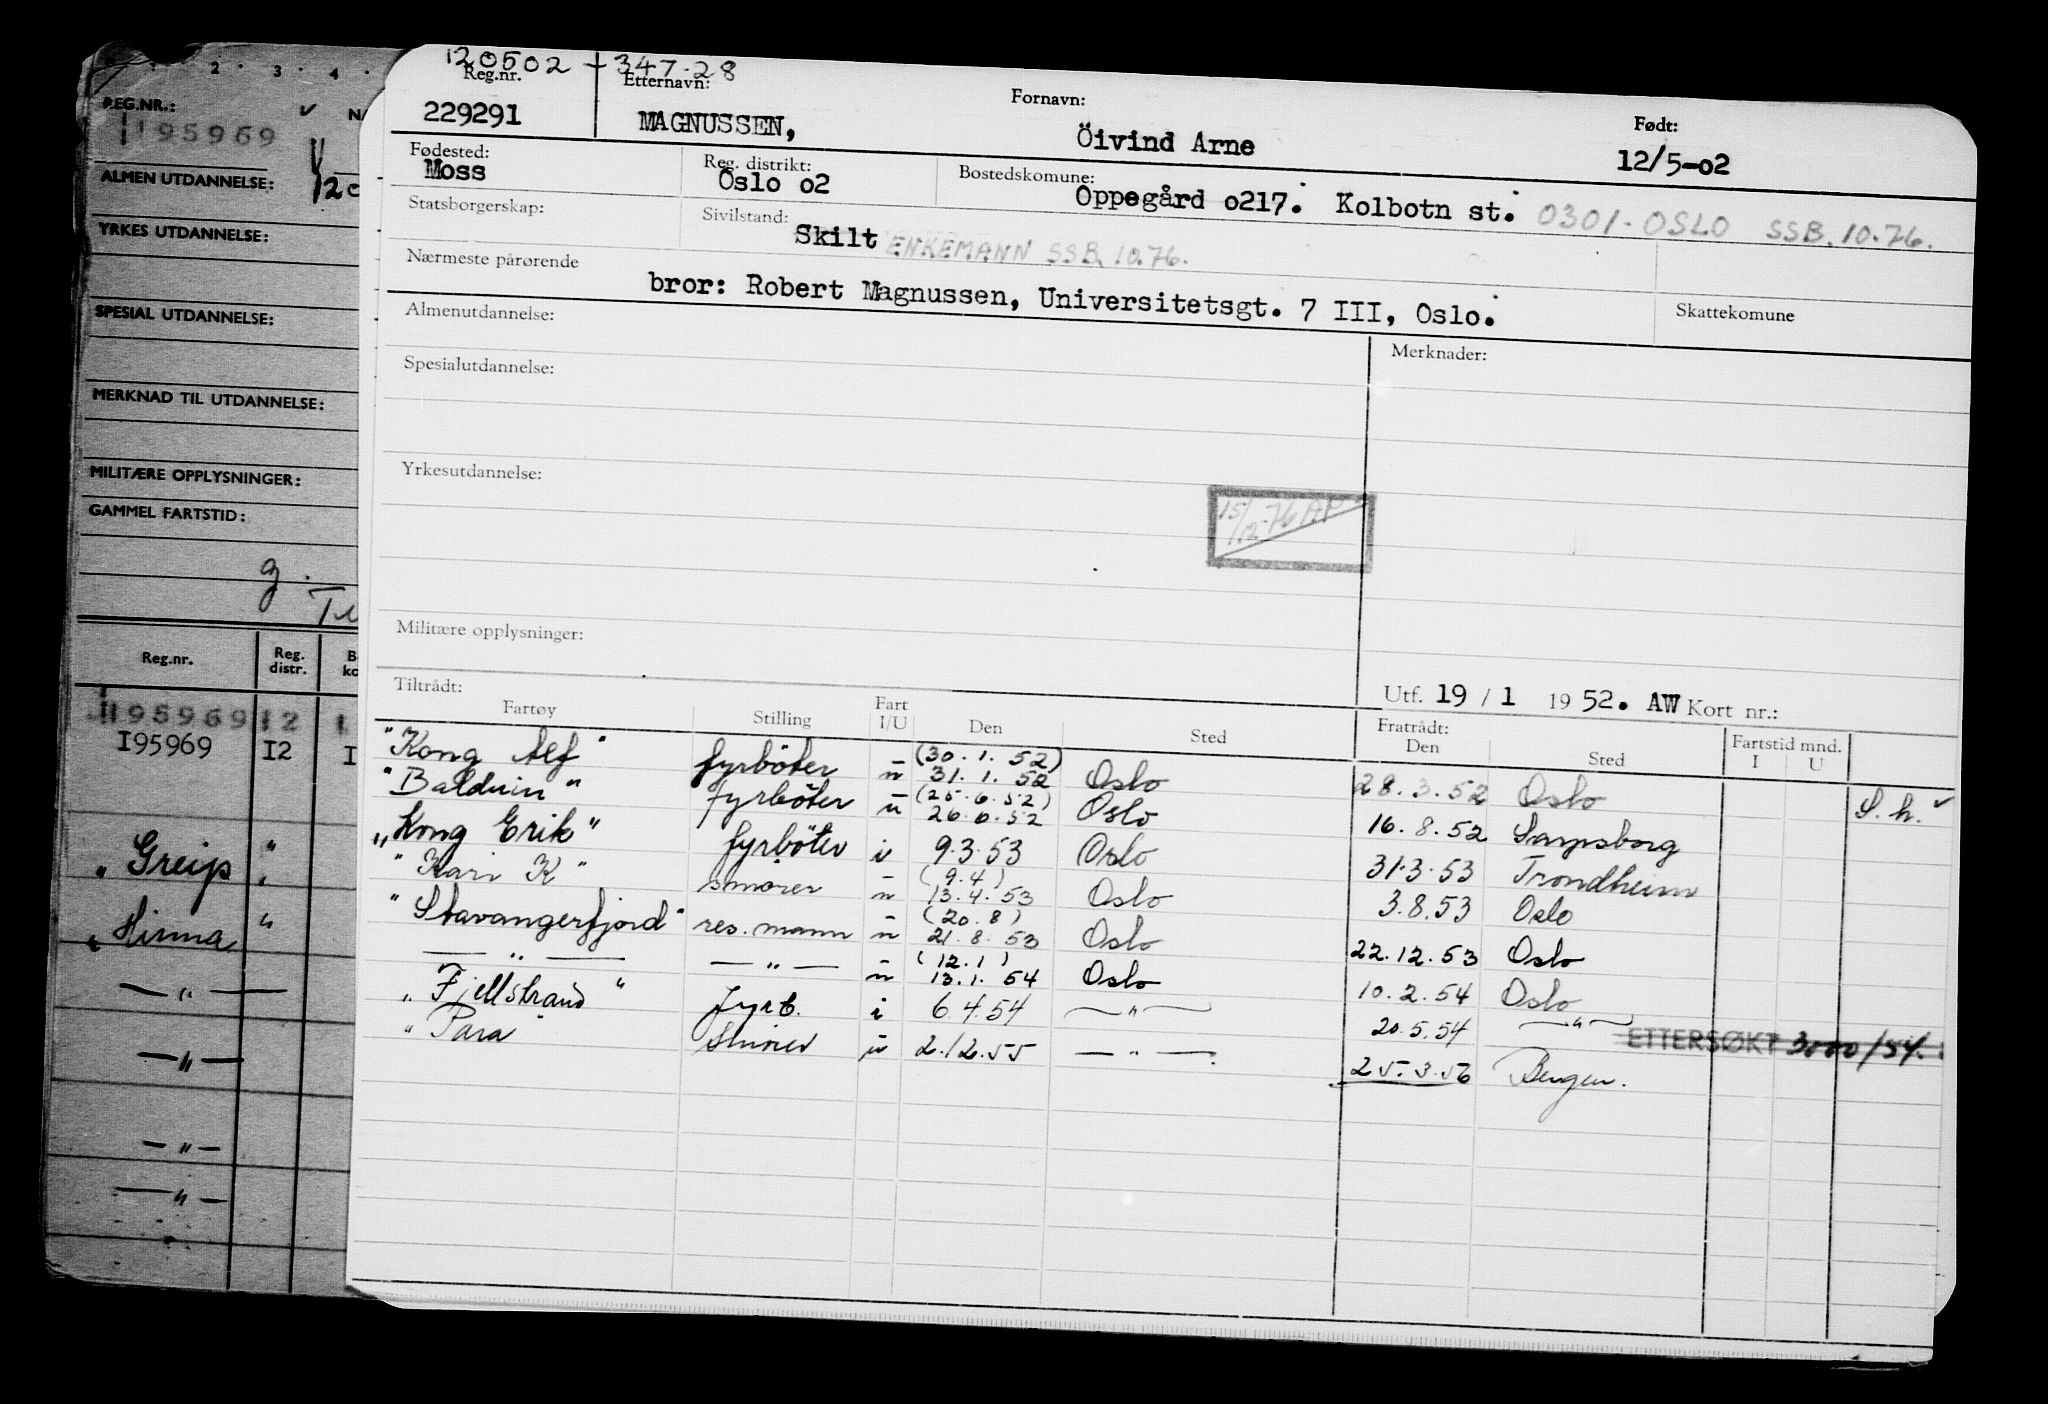 120502 - 347.28
Reg.nr. Etternavn: Fornavn: Født:
229291 MAGNUSSEN, Öivind Arne 12/5-02
Fødested: Reg. distrikt: Bostedskomune:
Moss Oslo o2 Oppegård o217. Kolbotn st. 0301-OSLO SSB. 10.76.
Statsborgerskap: Sivilstand:
Skilt ENKEMANN SSB. 10.76.
Nærmeste pårørende
bror: Robert Magnussen, Universitetsgt. 7 III, Oslo.
Skattekomune
Almenutdannelse: Merknader:
Spesialutdannelse:
Yrkesutdannelse:
15/12-76 AP
Militære opplysninger:
Utf. 19 / 1 1952. AW Kort nr.:
Tiltrådt: Fratrådt:
Fartøy Stilling Fart I/U Den Sted Den Sted Fartstid mnd. I U
"Kong Alf" fyrböter u (30.1.52) 31.1.52 Oslo 28.3.52 Oslo S.h. ✓
"Balduin" fyrböter u (25.6.52) 26.6.52 Oslo 16.8.52 Sarpsborg
"Kong Erik" fyrböter i 9.3.53 Oslo 31.3.53 Trondheim
"Kari K" smörer u (9.4) 13.4.53 Oslo 3.8.53 Oslo
"Stavangerfjord" res. mann u (20.8) 21.8.53 Oslo 22.12.53 Oslo
— " — — " — u (12.1) 13.1.54 Oslo 10.2.54 Oslo
"Fjellstrand" fyrb. i 6.4.54 — " — 20.5.54 — " —
ETTERSØKT 3000/54.
"Para smörer u 2.12.55 — " — 25.3.56 Bergen.
1 2 3 4
REG.NR.: ✓
195969
ALMEN UTDANNELSE:
YRKES UTDANNELSE:
SPESIAL UTDANNELSE:
MERKNAD TIL UTDANNELSE:
MILITÆRE OPPLYSNINGER:
GAMMEL FARTSTID:
g.
Reg.nr. Reg. distr.
195969 12
I95969 I2
"Greip "
"Hinna "
— " —
— " —
— " —
— " —